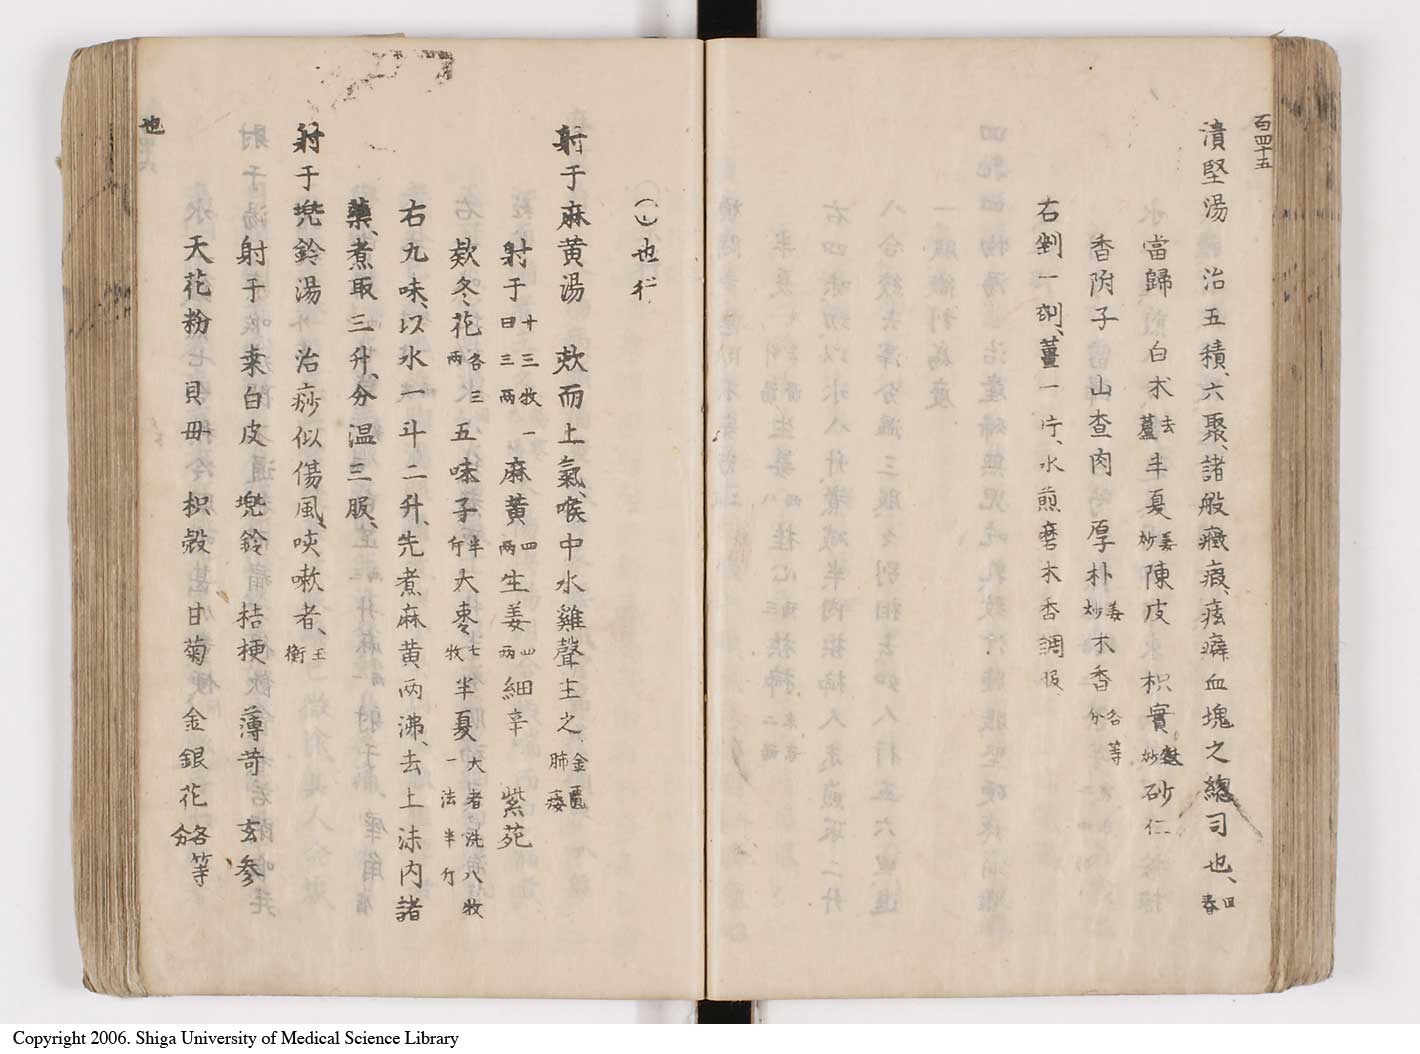 百四十五
潰堅湯 治五積、六聚、諸般癥瘕、痃癖血塊之總司也、回春
當歸 白朮去蘆 半夏姜炒 陳皮 枳實麩炒 砂仁
香附子 山査肉 厚朴姜炒 木香各等分
右剉一劑、薑一片、水煎磨木香調服、
(し)也行
射干麻黄湯 欬而上氣、喉中水雞聲主之、金匱肺痿
射干十三牧一曰三両 麻黄四両 生姜四両 細辛 紫苑
欵冬花各三両 五味子半斤 大棗七牧 半夏大者洗八牧一法半斤
右九味、以水一斗二升、先煮麻黄両沸、去上沫内諸
藥、煮取三升、分温三服、
射干兠鈴湯 治痧似傷風、咳嗽者、玉衡
射干 桒白皮 兠鈴 桔梗 薄苛 玄参
天花粉 貝母 枳殻 甘菊 金銀花各等分
也
Copyright 2006. Shiga University of Medical Science Library